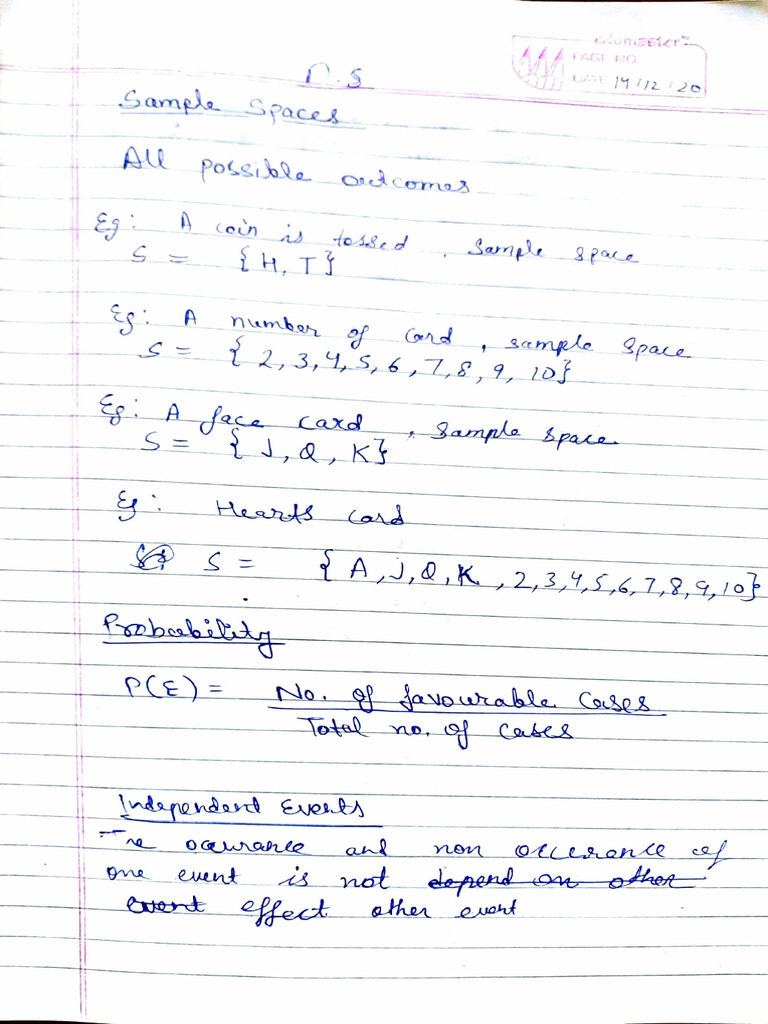 edumaster
PAGE NO
DATE 14/12/20
n.s
Sample Spaces
All possible outcomes
Eg: A coin is tossed, sample space
S = {H, T}
Eg: A number of card, sample space
S = {2, 3, 4, 5, 6, 7, 8, 9, 10}
Eg: A face card, sample space
S = {J, Q, K}
Eg: Hearts card
S = {A, J, Q, K, 2, 3, 4, 5, 6, 7, 8, 9, 10}
Probability
P(E) = No. of favourable cases
Total no. of cases
Independent Events
The occurance and non occurance of
one event is not depend on other
event effect other event